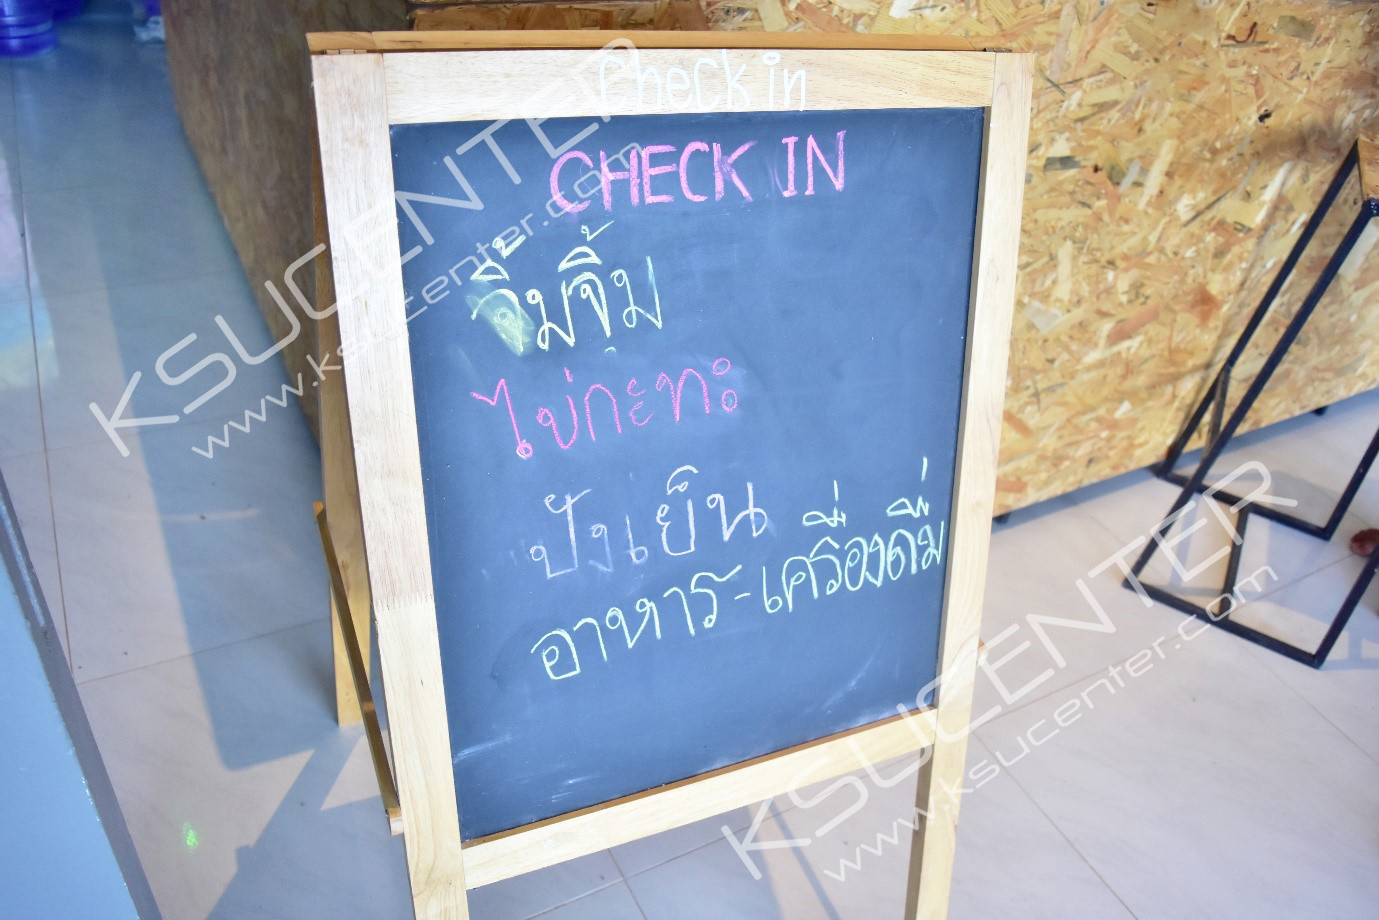 Check in
CHECK IN
จิ้มจิ้ม
ไข่กะทะ
ปังเย็น
อาหาร-เครื่องดื่ม
KSUCENTER
www.ksucenter.com
KSUCENTER
www.ksucenter.com